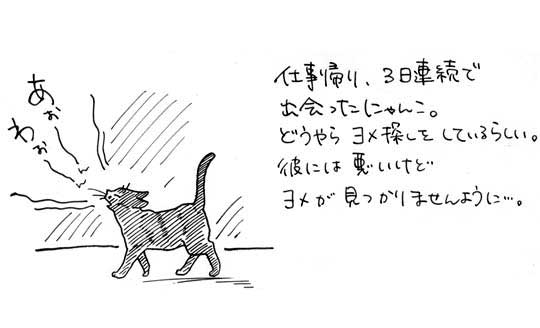 仕事帰り、3日連続で
出会ったにゃんこ。
どうやらヨメ探しをしているらしい。
彼には悪いけど
ヨメが見つかりませんように…。
あぉ
わぉ